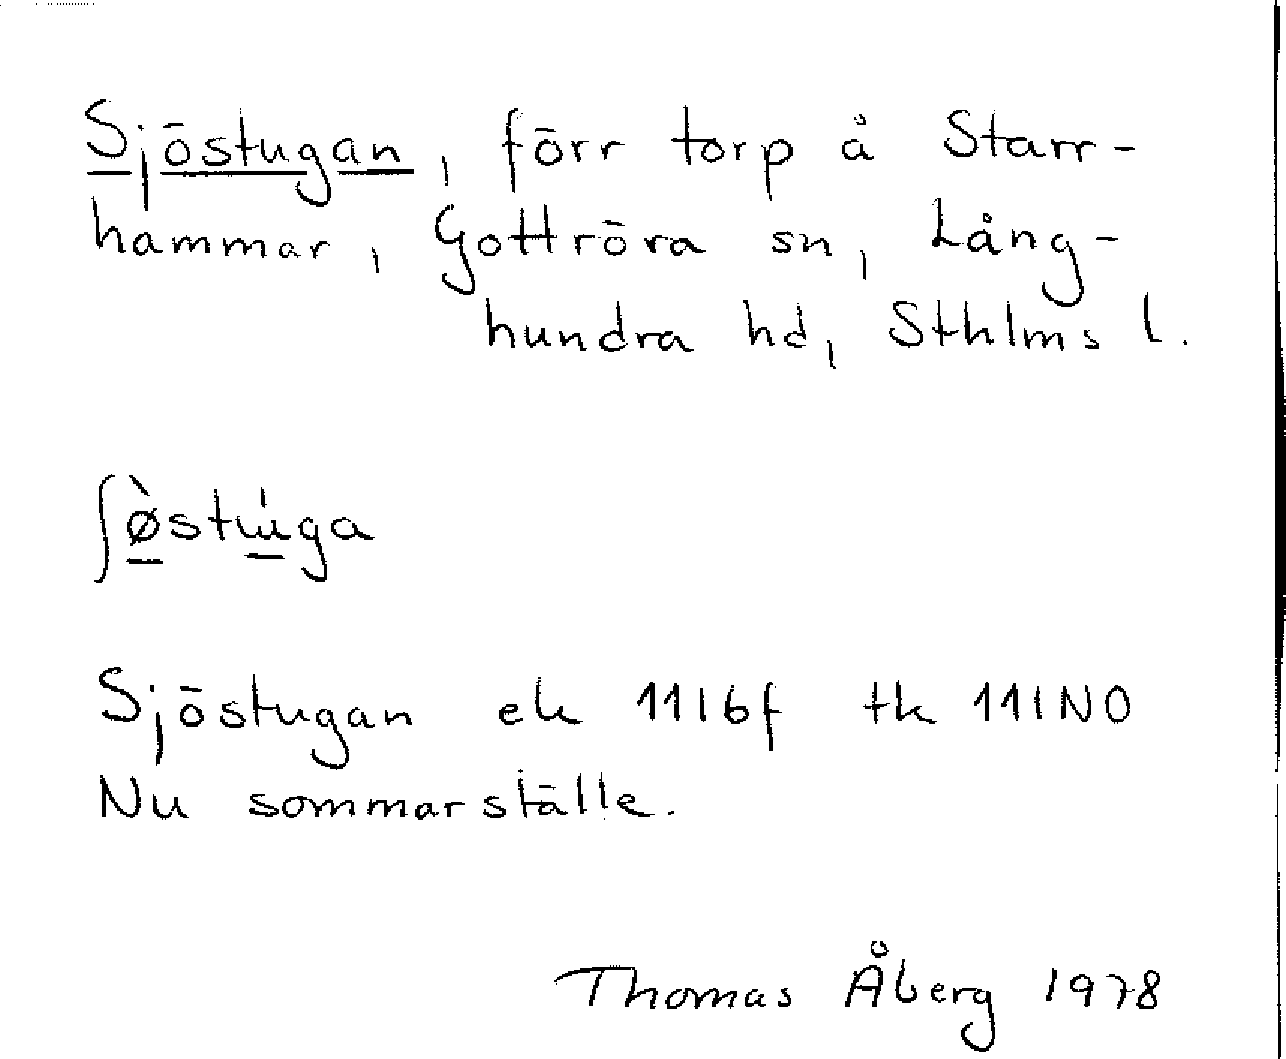 Sjöstugan, förr torp å Starr-
hammar, Gottröra sn, Lång-
hundra hd, Sthlms l.
ʃø̠̀stu̠̍ga
Sjöstugan ek 11I6f tk 11INO
Nu sommarställe.
Thomas Åberg 1978